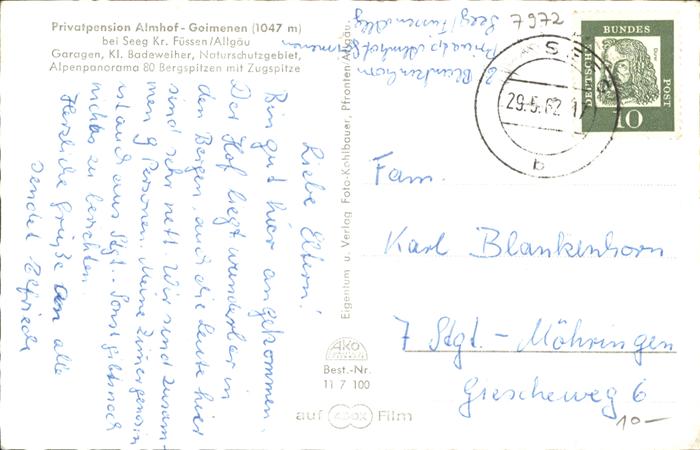 Privatpension Almhof - Goimenen (1047 m)
bei Seeg Kr. Füssen/Allgäu
Garagen, Kl. Badeweiher, Naturschutzgebiet,
Alpenpanorama 80 Bergspitzen mit Zugspitze
Liebe Eltern!
Bin gut hier angekommen.
Der Hof liegt wunderbar in
den Bergen, und die Leute hier
sind sehr nett. Wir sind zusam-
men 9 Personen. Meine Zimmergenossin
ist auch aus Stgt. Sonst gibts noch
nichts zu berichten.
Herzliche Grüße an alle
sendet Elfriede
Eigentum u. Verlag Foto-Kohlbauer, Pfronten/Allgäu.
Blankenhorn
Privatp. Almhof Goimenen
7972 Seeg/Füssen Allg.
SEEG
29.5.62.17
b
DEUTSCHE
BUNDES
POST
Dürer
10
Fam.
Karl Blankenhorn
7 Stgt.-Möhringen
Griesheweg 6
10 —
Ako
Best.-Nr.
11 7 100
auf adox Film